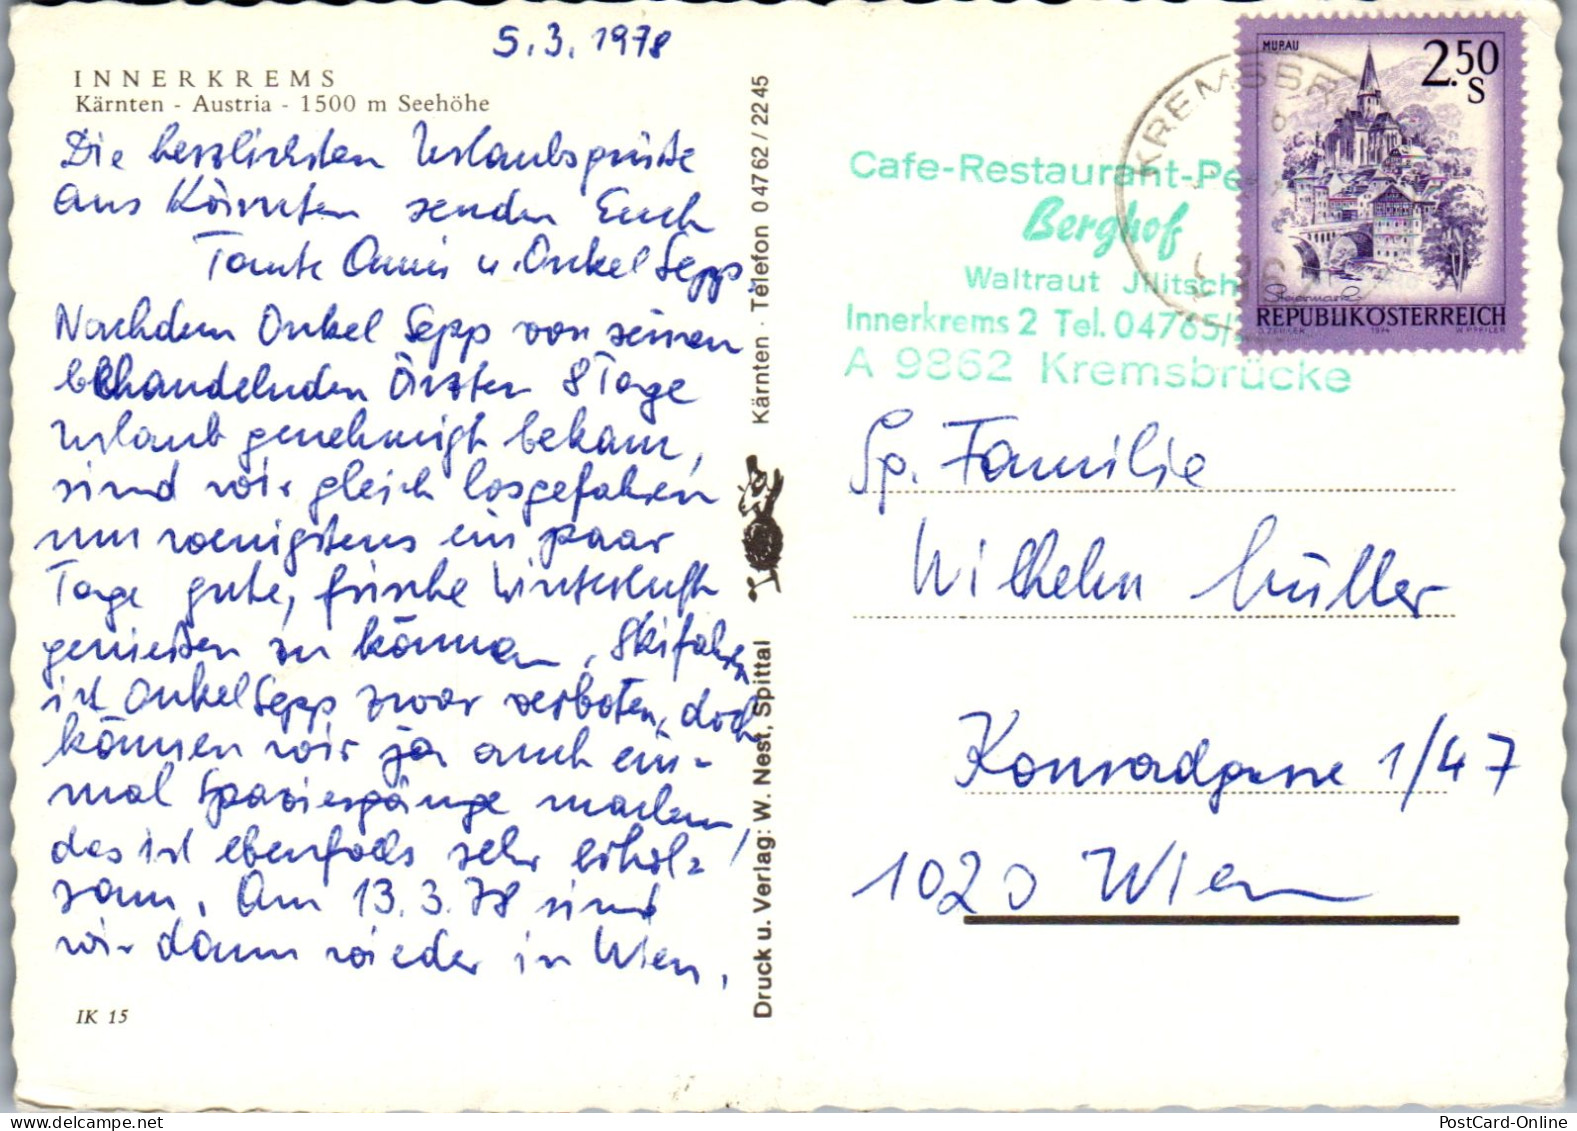 5.3.1978
INNERKREMS
Kärnten - Austria - 1500 m Seehöhe
Die herzlichsten Urlaubsgrüße
aus Kärnten senden Euch
Tante Anni u. Onkel Sepp.
Nachdem Onkel Sepp von seinen
behandelnden Ärzten 8 Tage
Urlaub genehmigt bekam,
sind wir gleich losgefahren
um wenigstens ein paar
Tage gute, frische Winterluft
genießen zu können. Skifahren
ist Onkel Sepp zwar verboten, doch
können wir ja auch ein-
mal Spaziergänge machen,
das ist ebenfalls sehr erhol-
sam. Am 13.3.78 sind
wir dann wieder in Wien.
IK 15
Druck u. Verlag: W. Nest, Spittal
Kärnten · Telefon 0 47 62 / 22 45
KREMSBR
MURAU
2.50
S
Steiermark
REPUBLIK ÖSTERREICH
1974
Cafe-Restaurant-Pe
Berghof
Waltraut Jllitsch
Innerkrems 2 Tel. 04765/
A 9862 Kremsbrücke
Sp. Familie
Wilhelm Müller
Konradgasse 1/47
1020 Wien
PostCard-Online